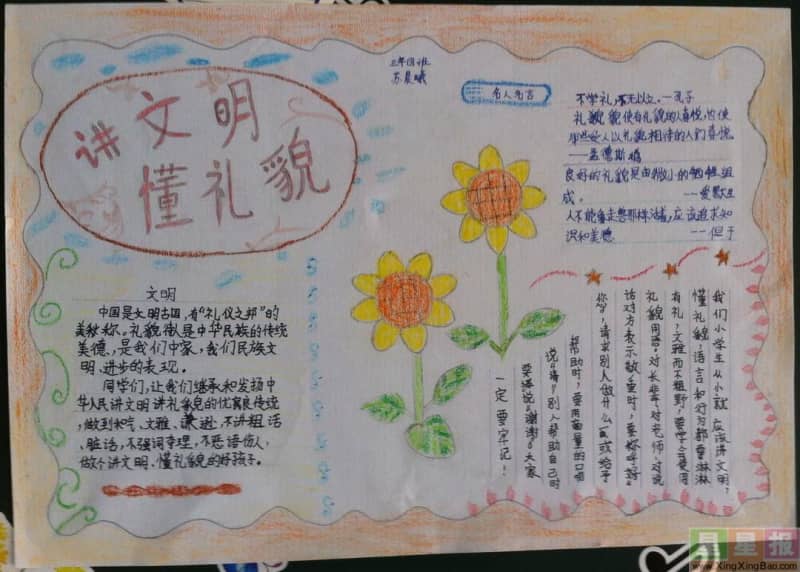 讲文明
懂礼貌
三年四班
苏晨曦
名人名言
不学礼，无以立。—孔子
礼貌使有礼貌的人喜悦，也使
那些受人以礼貌相待的人们喜悦
——孟德斯鸠
良好的礼貌是由微小的牺牲组
成。 ——爱默生
人不能像走兽那样活着，应该追求知
识和美德 ——但丁
文明
中国是文明古国，有“礼仪之邦”的
美称。礼貌是中华民族的传统
美德、是我们国家，我们民族文
明、进步的表现。
同学们，让我们继承和发扬中
华人民讲文明讲礼貌的优良传统
，做到和气、文雅、谦逊，不讲粗话
、脏话，不强词夺理，不恶语伤人，
做个讲文明、懂礼貌的好孩子。
我们小学生从小就应该讲文明，
懂礼貌，语言和行为都要彬彬
有礼，文雅而不粗野，要学会使用
礼貌用语。对长辈、对老师，对说
话对方表示敬重时，要称呼“
您”，请求别人做什么 或给予
帮助时，要用商量的口吻
说“请”。别人帮助自己时
要说“谢谢”。大家
一定要牢记！
星星报
www.XingXingBao.com